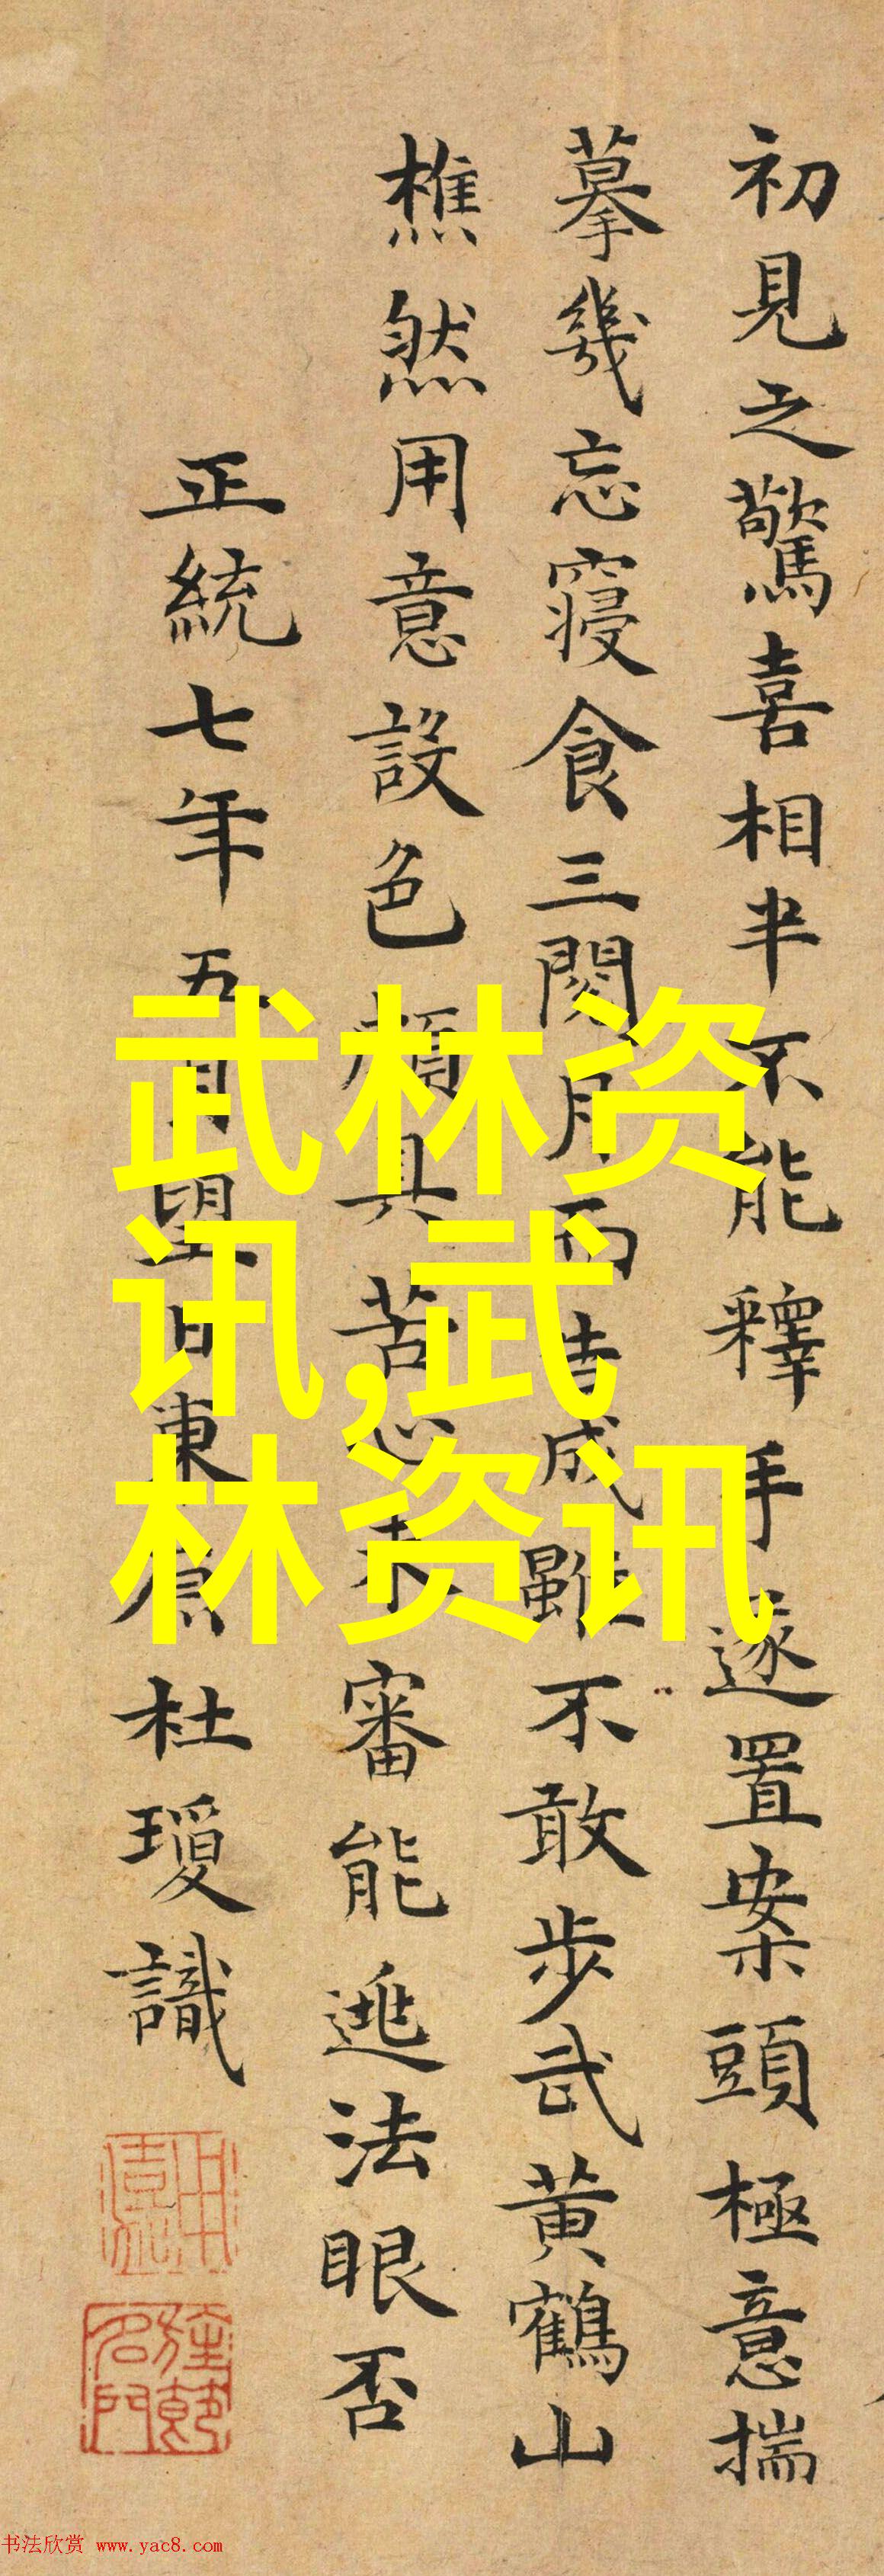 初見之驚喜相半不能釋手遂置案頭極意揣
摹幾忘寢食三閱月而告成雖不敢步武黃鶴山
樵然用意設色頗具苦心未審能逃法眼否
正統七年五月望日東原杜瓊識
武林资
讯,武
林资讯
书法欣赏 www.yac8.com